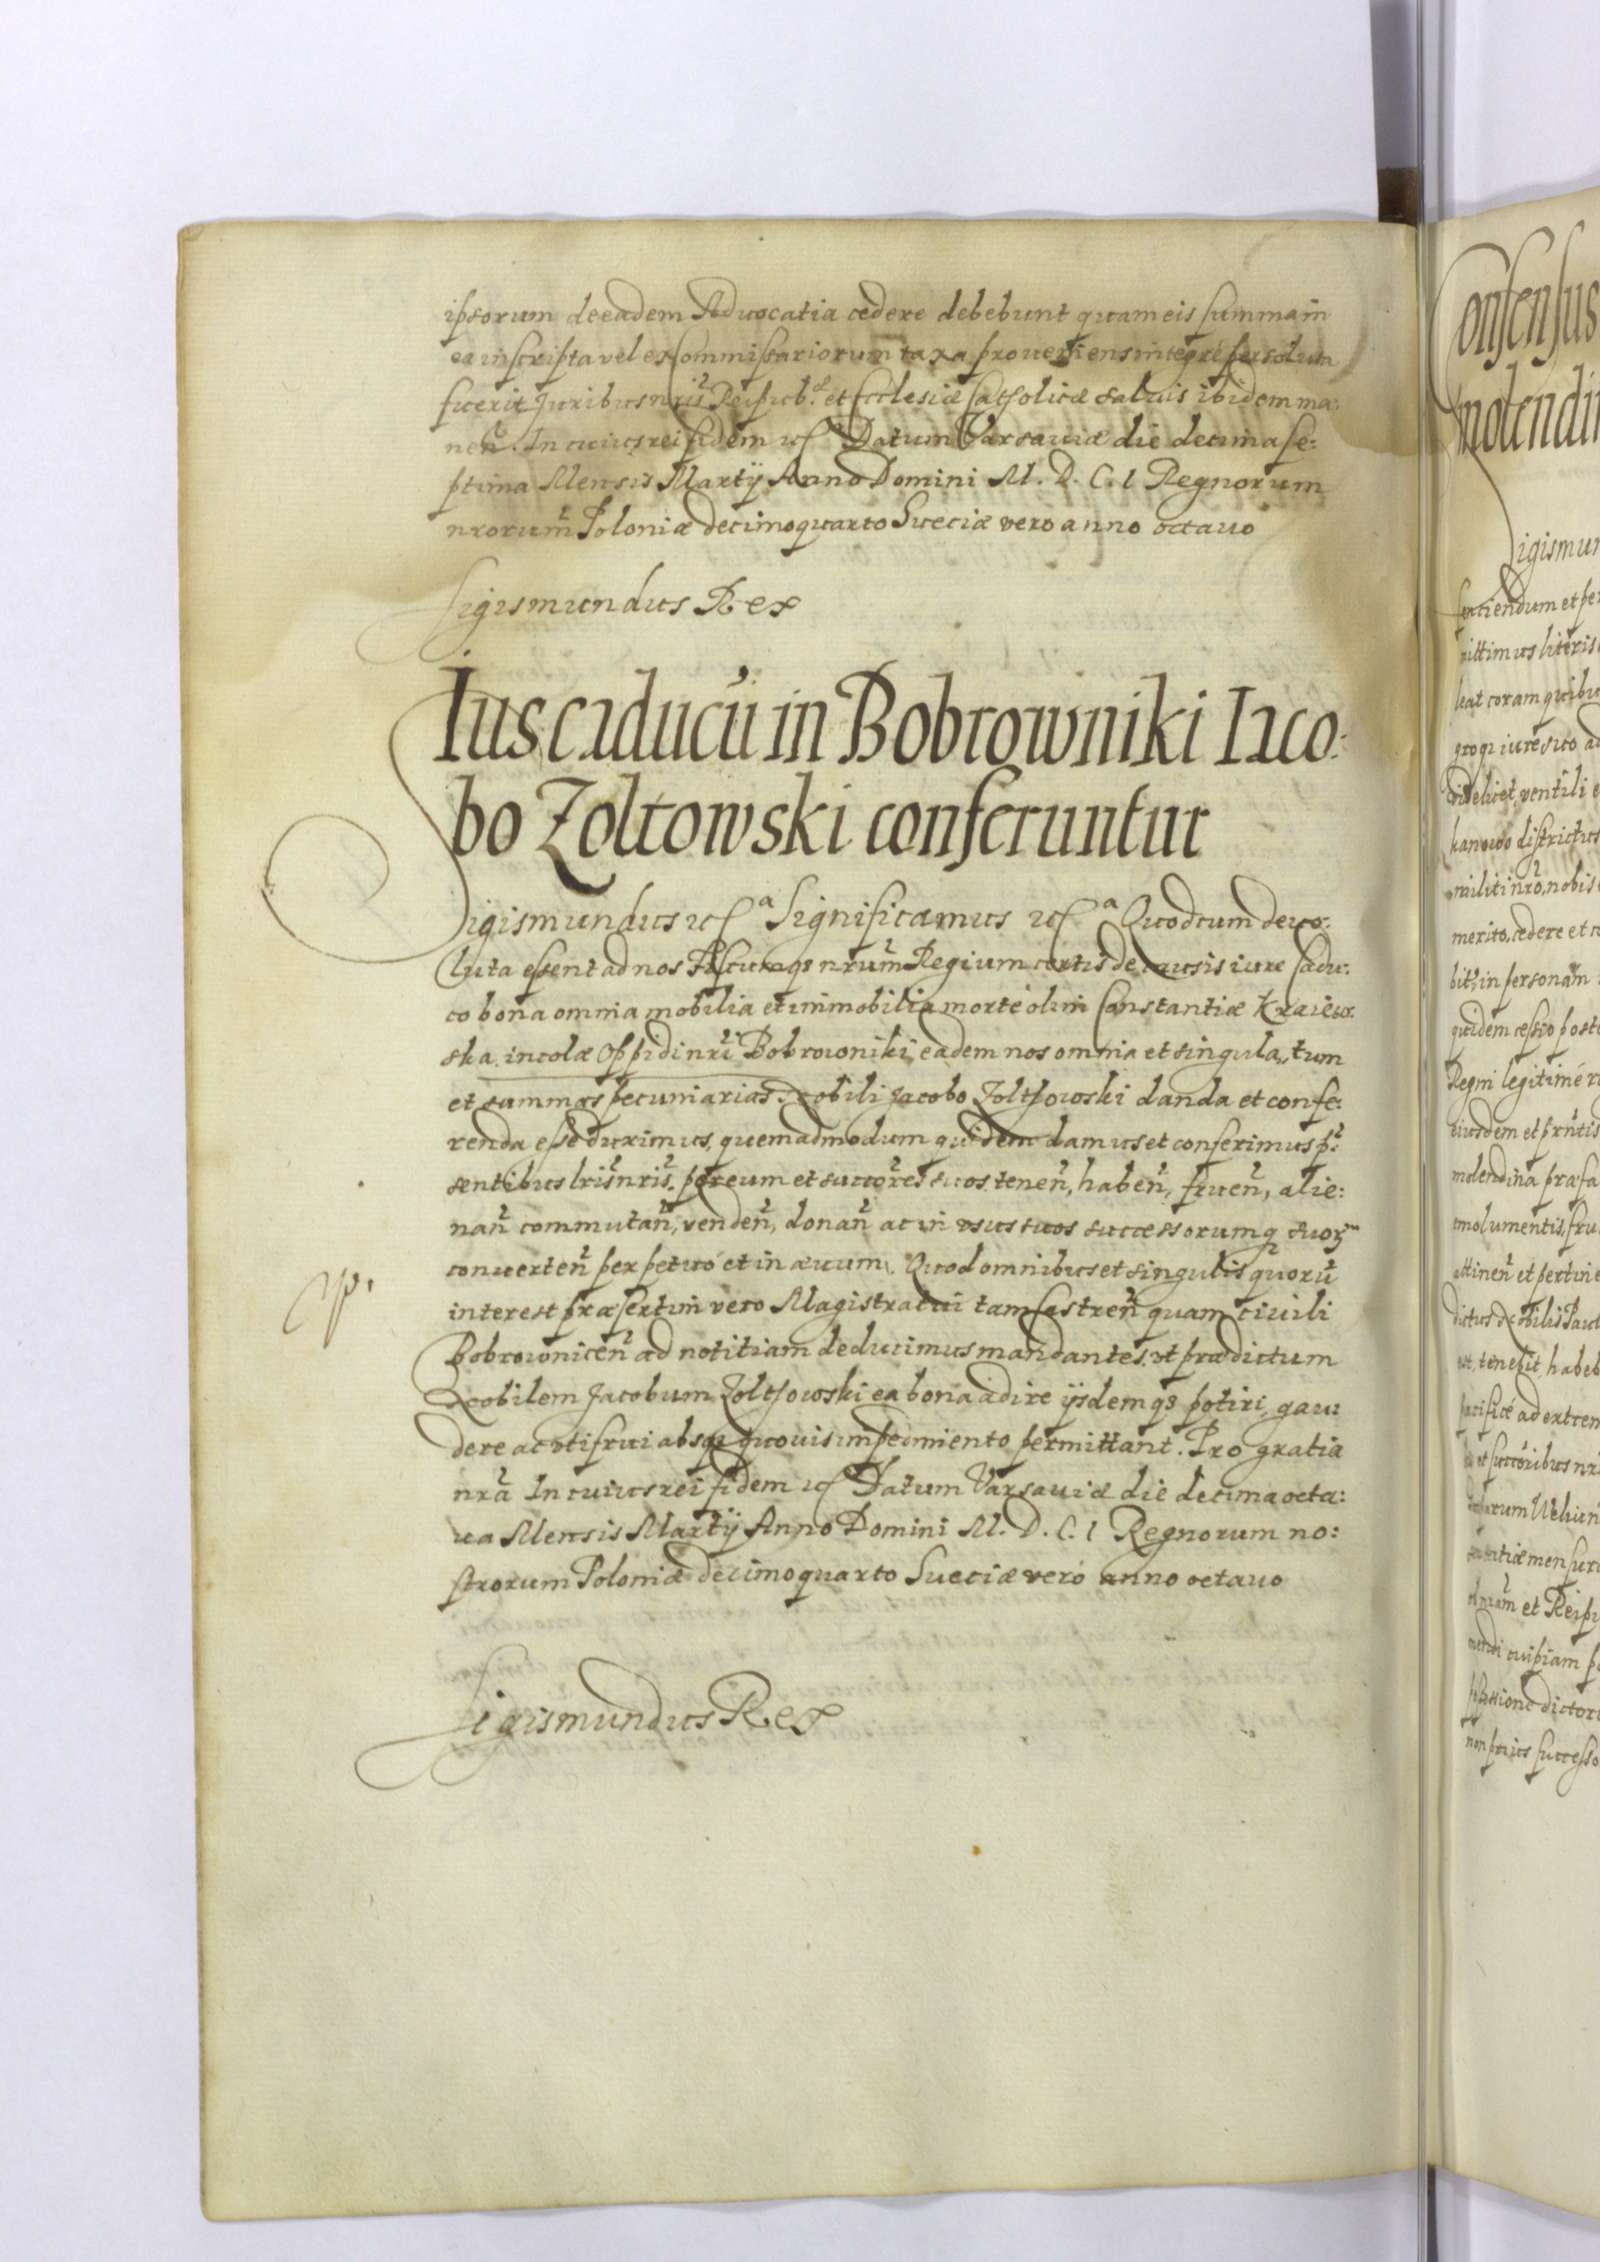 ipsorum de eadem Advocatia cedere debebunt quam eis summa in
ea inscripta vel ex Commissariorum taxa proveniens integre persolut̃
fuerit Juribus nrĩs Reipub. et Ecclesiæ Catholicæ salvis ibidem ma:
neñ. In cuius rei fidem etc Datum Varsaviæ die decima se:
ptima Mensis Martij Anno Domini M. D. C. I Regnorum
nrorum̃ Poloniæ decimoquarto Sueciæ vero anno octauo
Sigismundus Rex
Ius caducũ in Bobrowniki Iaco:
bo Zoltowski conferuntur
Sigismundus etcᵃ Significamus etcᵃ Quod cum deuo:
luta essent ad nos Fiscumqꝫ nrum̃ Regium certis de causis iure Cadu:
co bona omnia mobilia et immobilia morte olim Constantiæ Kraiew:
ska incolæ Oppidi nrĩ Bobrowniki, eadem nos omnia et singula, tum
et summas pecuniarias Nobili Jacobo Zolthowski danda et confe:
renda esse duximus, quemadmodum quidem damus et conferimus p̃:
sentibus lris̃ nris̃. per eum et succõres suos teneñ, habeñ, frueñ, alie:
nañ commutañ, vendeñ, donañ ac in usus suos successorumqꝫ suoꝝ
converteñ perpetuó et in ævum. Quod omnibus et singulis quorũ
interest præsertim vero Magistratui tam Castreñ quam ciuili
Bobrowniceñ ad notitiam deducimus mandantes, vt prædictum
Nobilem Jacobum Zolthowski ea bona adire ijsdemqꝫ potiri, gau:
dere ac vti frui absqꝫ quouis impedimento permittant. Pro gratia
nrã In cuius rei fidem etc Datum Varsaviæ die decima octa:
ua Mensis Martij Anno Domini M. D. C. I Regnorum no:
strorum Poloniæ decimoquarto Sueciæ veró anno octauo
Sigismundus Rex
Consensus
molendi
Sigismun
faciendum et per
mittimus literis
leat coram quibus
videlicet, ventili
districtus
militi nrõ, nobis
merito, cedere et
bit, in personam
quidem cessio post
Regni legitimé
eiusdem et prñtis
molendina præfa
emolumentis, fru
attineñ et pertine
dictus Nobilis Paul
est, tenebit, habeb
pacificé ad extrem
et succõribus nri
et Reipu
cuipiam
dictor
non prius successo